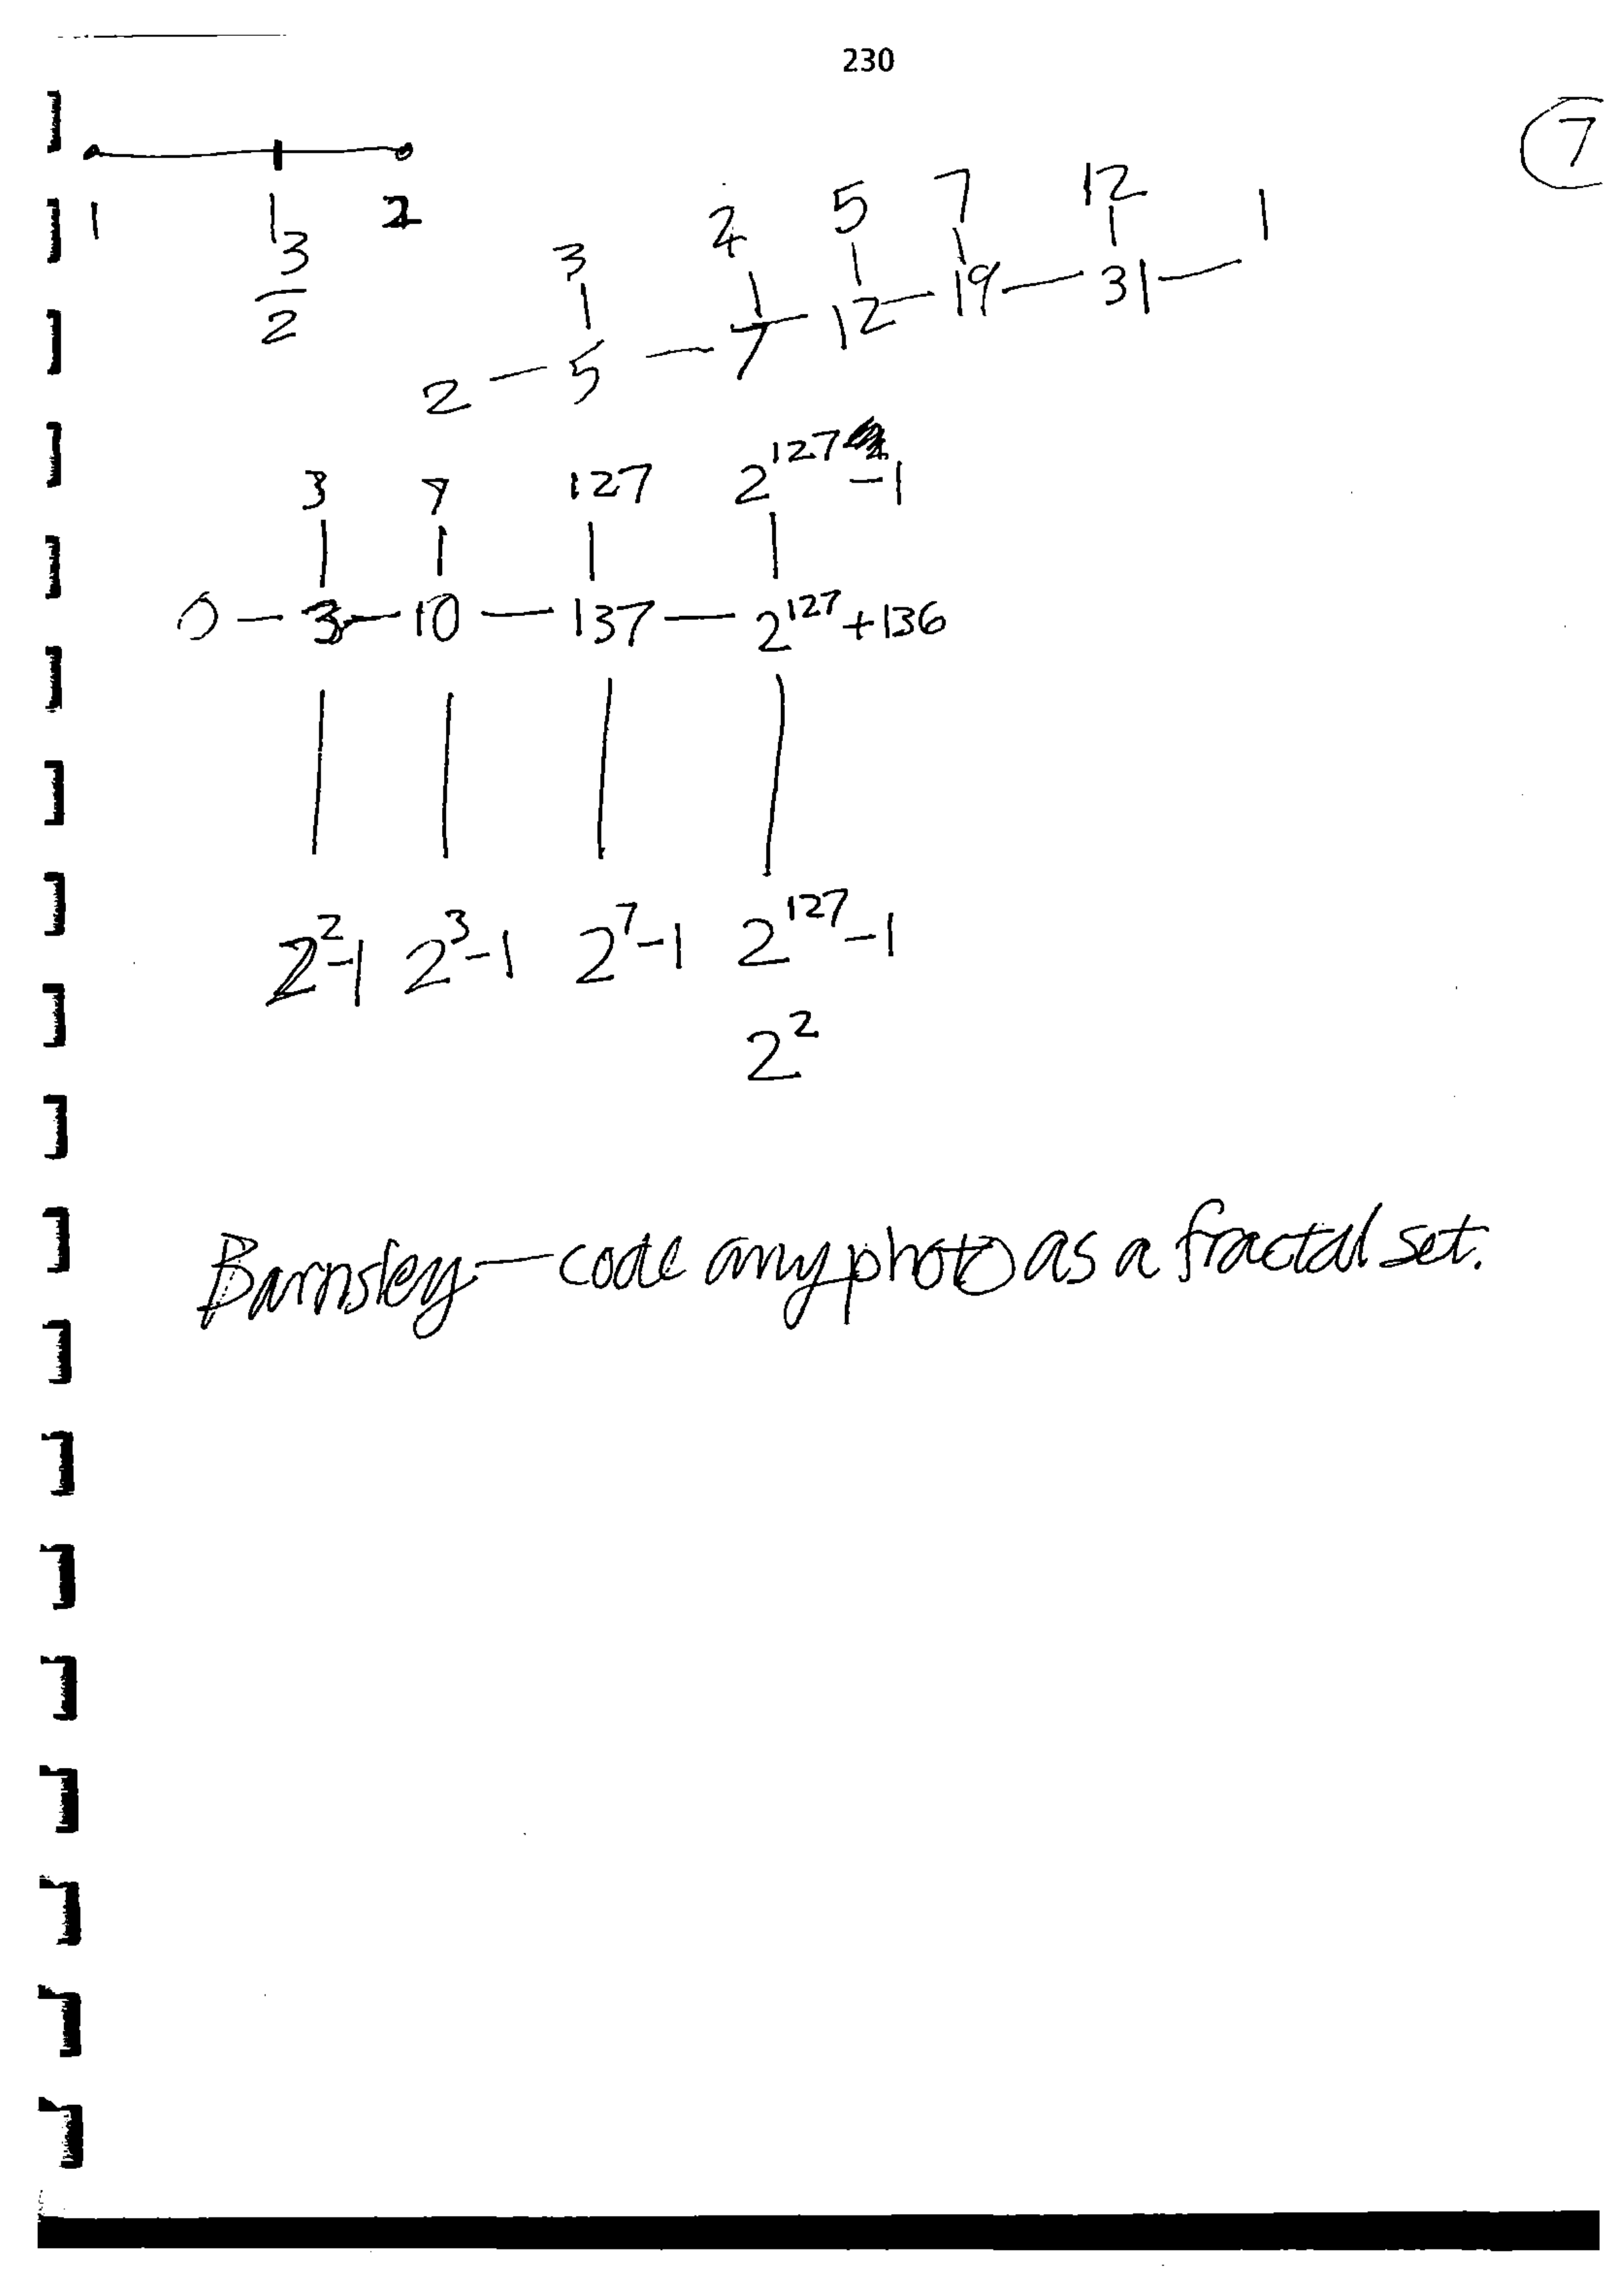 230
7
1 3/2 2
3 2 5 7 12 1
2 — 5 — 7 — 12 — 19 — 31 —
3 7 127 2^127 - 1
0 — 3 — 10 — 137 — 2^127 + 136
2^2-1 2^3-1 2^7-1 2^127-1
2^2
Barnsley — code any photo as a fractal set.